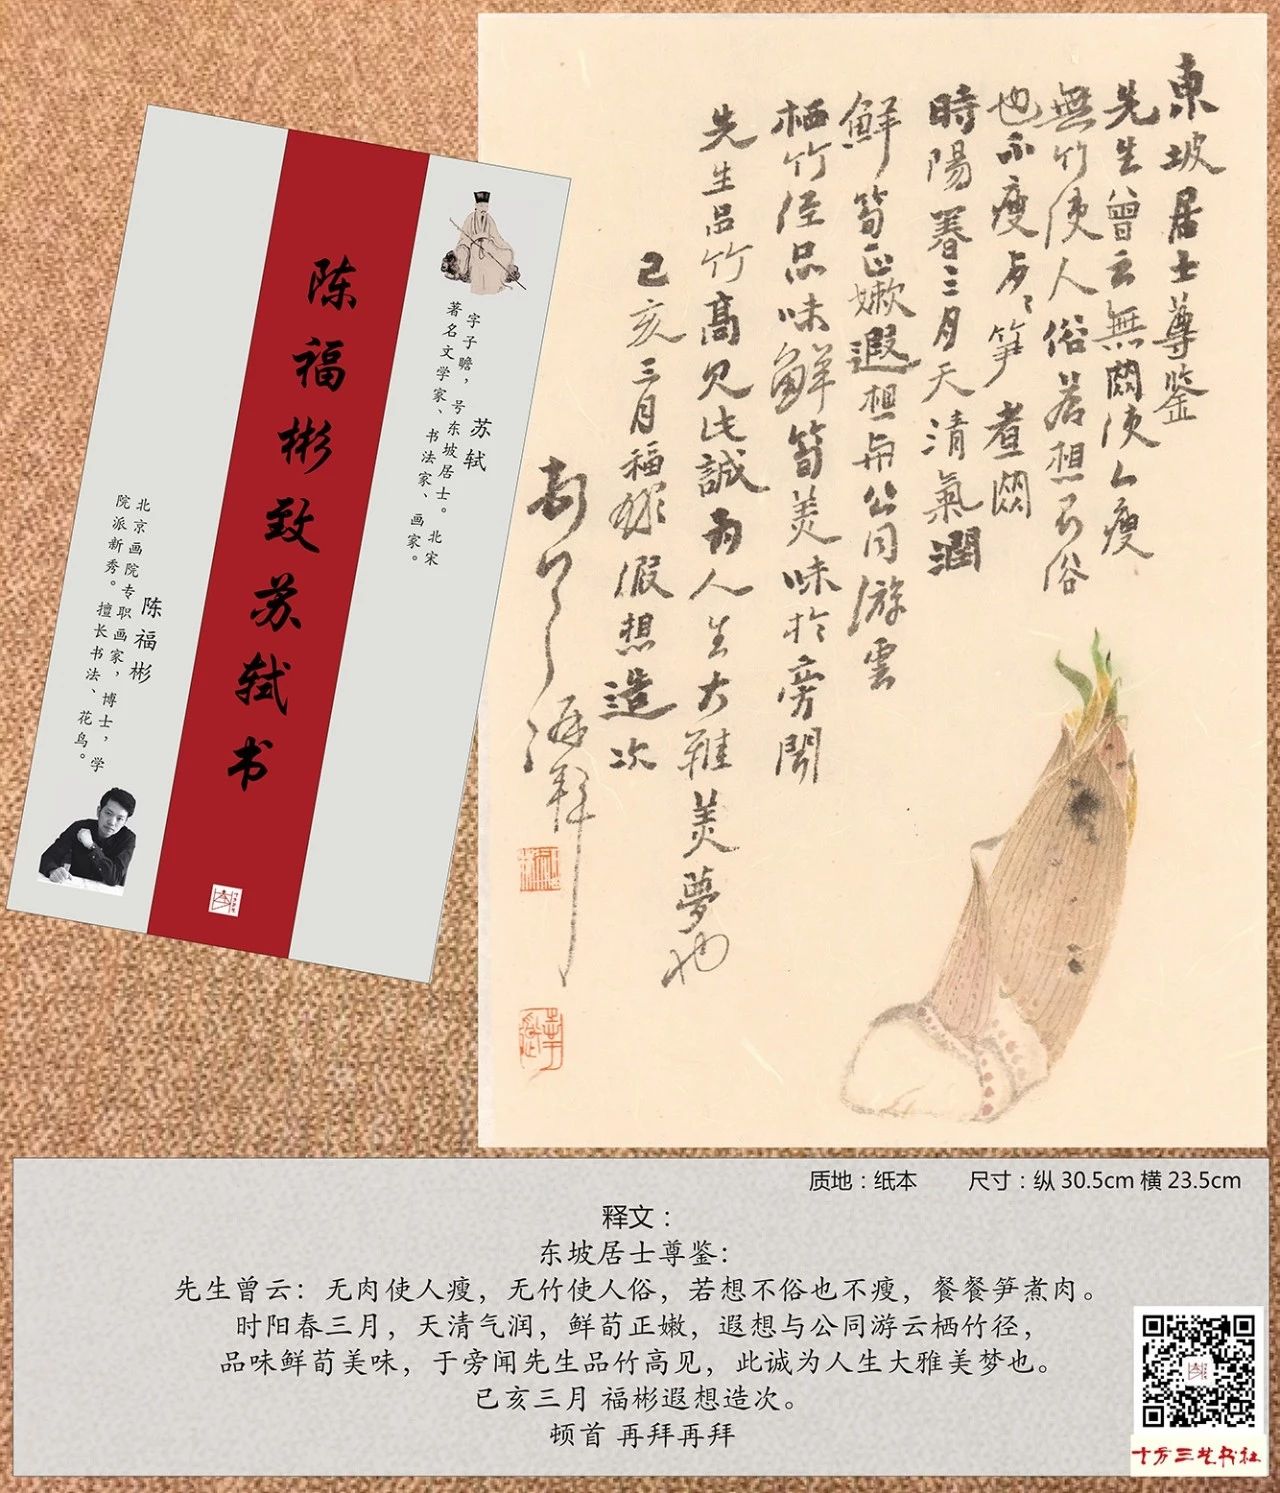 陈福彬致苏轼书
苏轼
字子瞻，号东坡居士。北宋
著名文学家、书法家、画家。
陈福彬
北京画院专职画家，博士，学
院派新秀。擅长书法、花鸟。
東坡居士尊鉴
先生曾云無肉使人瘦
無竹使人俗若想不俗
也不瘦
筍煮肉
時陽春三月天清氣潤
鮮筍正嫩遐想与公同游雲
栖竹径品味鮮筍美味於旁聞
先生品竹高见此誠为人生大雅美夢也
己亥三月福彬遐想造次
顿首
再拜
质地：纸本 尺寸：纵 30.5cm 横 23.5cm
释文：
东坡居士尊鉴：
先生曾云：无肉使人瘦，无竹使人俗，若想不俗也不瘦，餐餐笋煮肉。
时阳春三月，天清气润，鲜荀正嫩，遐想与公同游云栖竹径，
品味鲜荀美味，于旁闻先生品竹高见，此诚为人生大雅美梦也。
己亥三月 福彬遐想造次。
顿首 再拜再拜
十方三艺书社